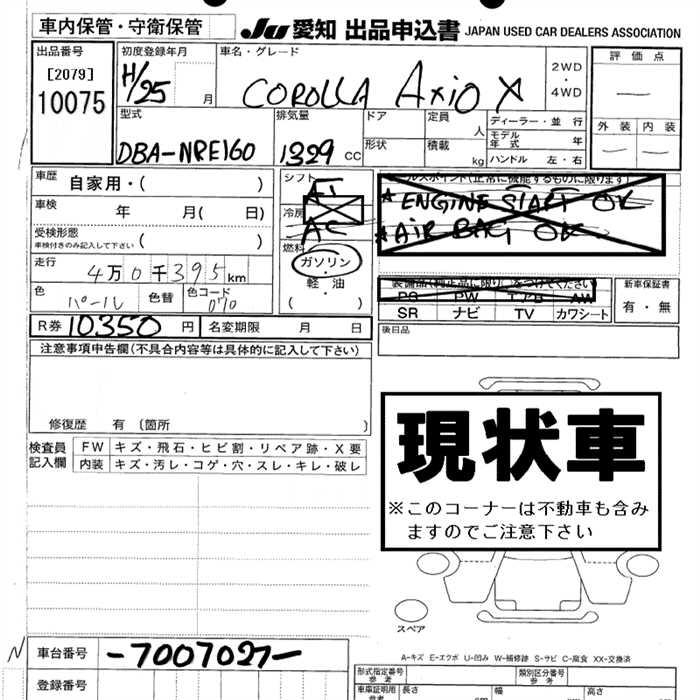 車内保管・守衛保管
JU 愛知 出品申込書 JAPAN USED CAR DEALERS ASSOCIATION
出品番号
[2079]
10075
初度登録年月
H/25 月
車名・グレード
COROLLA AXIO X
2WD
・
4WD
評価点
外装 内装
型式
DBA-NRE160
排気量
1329 CC
ドア
形状
定員 人
積載 kg
ディーラー・並行
モデル年式 年
ハンドル 左・右
車歴 自家用・( )
車検 年 月( 日)
受検形態
車検付きのみ記入して下さい ( )
走行
4万0千395km
色
パール
色替
色コード
070
シフト
AT
冷房
AC
燃料
ガソリン・
軽・油
( )
セールスポイント(正常に機能するものに限ります)
★ENGINE START OK
★AIR BAG OK
装備品(純正品に限り)をつけてください
PS PW エアB AW
SR ナビ TV カワシート
新車保証書
有・無
R券 10.350 円
名変期限 月 日
後日品
注意事項申告欄(不具合内容等は具体的に記入して下さい)
修復歴 有 〔箇所 〕
検査員記入欄
FW キズ・飛石・ヒビ割・リペア跡・X要
内装 キズ・汚レ・コゲ・穴・スレ・キレ・破レ
現状車
※このコーナーは不動車も含み
ますのでご注意下さい
スペア
A-キズ E-エクボ U-凹み W-補修跡 S-サビ C-腐食 XX-交換済
N
車台番号 -7007027-
登録番号
形式指定番号
参考
類別区分番号
参考
車庫証明用
参考
長さ
幅
高さ